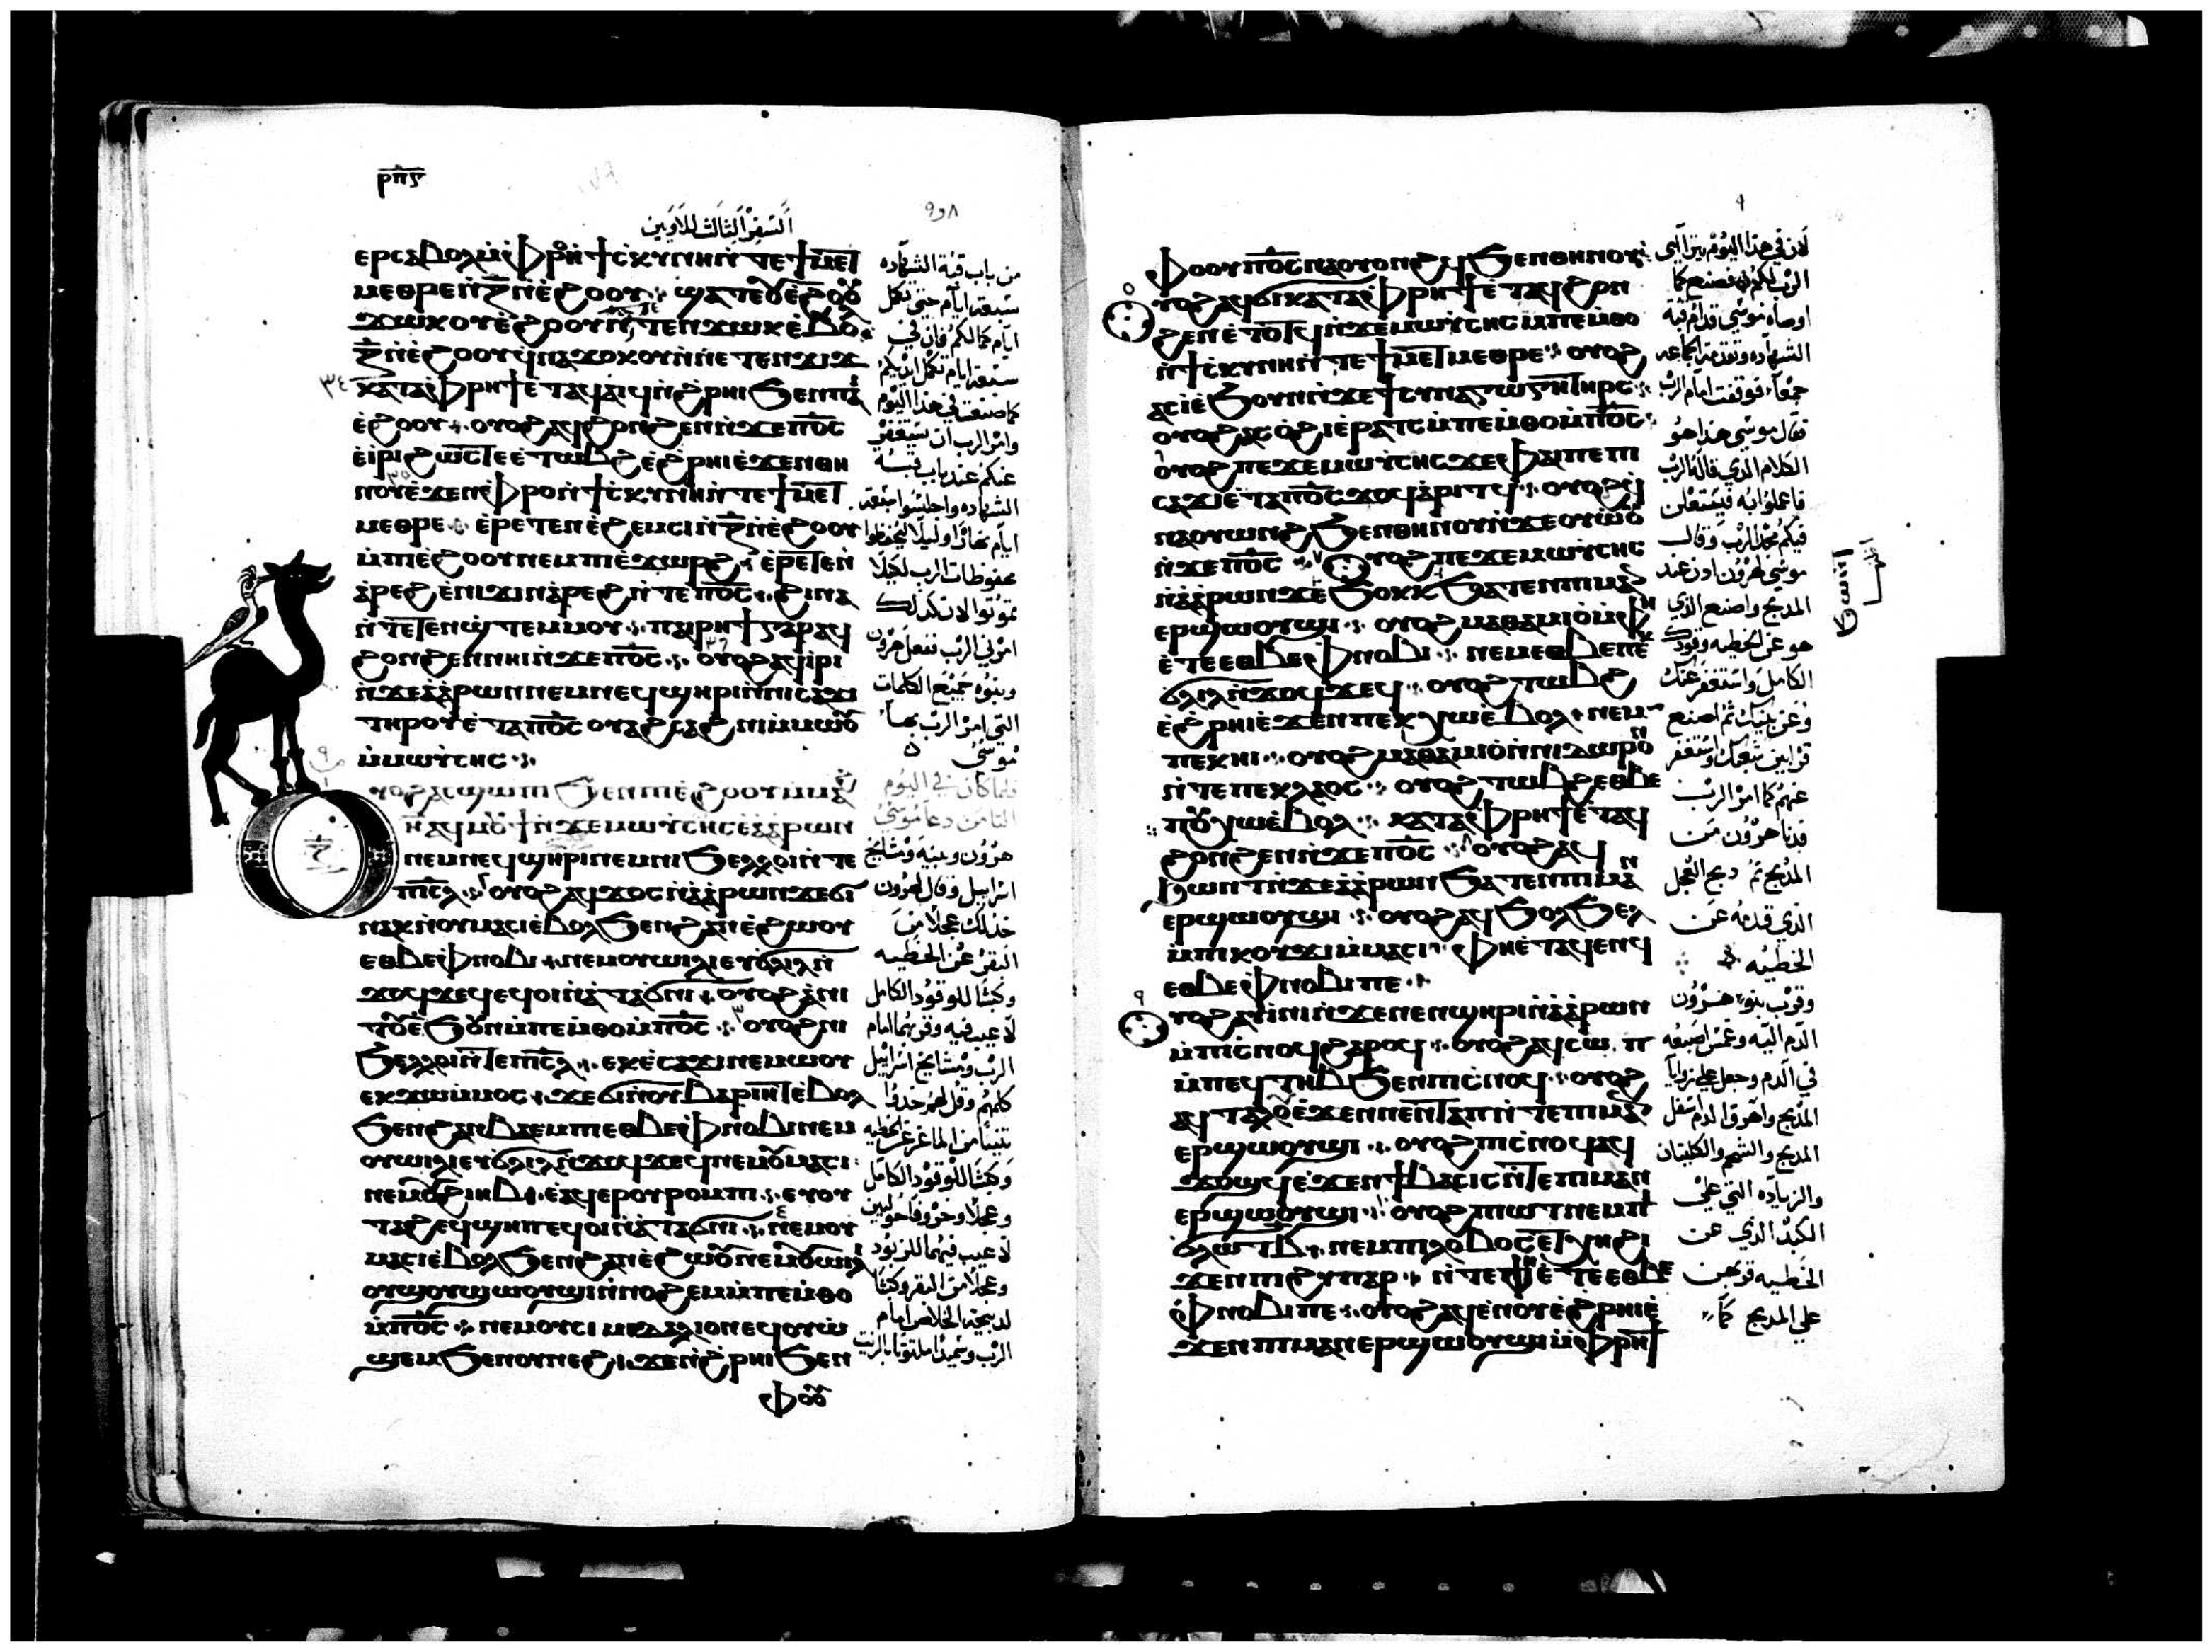 ⲣⲡⲋ
السفر الثالث للاويين
ⲉⲣⲥⲁⲃⲟⲗ ⲙ̀ⲫⲣⲟ ⲛ̀ϯⲥⲕⲩⲛⲏ ⲛ̀ⲧⲉ ϯⲙⲉⲧ
ⲙⲉⲑⲣⲉ ⲛ̀ⲍ̅ ⲛ̀ⲉ̀ϩⲟⲟⲩ
ϫⲱⲕ ⲟⲩⲉ̀ϩⲟⲟⲩ ⲛ̀ⲧⲉⲡϫⲱⲕ ⲉ̀ⲃⲟ
ⲍ̅ ⲛ̀ⲉ̀ϩⲟⲟⲩ ϥⲛⲁϫⲟⲕⲟⲩ ⲛ̀ⲛⲉⲧⲉⲛϫⲓϫ
ⲕⲁⲧⲁ ⲫⲣⲏϯ ⲉ̀ⲧⲁϥⲁⲓϥ ⲛ̀ϩⲣⲏⲓ ϧⲉⲛ ⲡⲁⲓ
ⲉ̀ϩⲟⲟⲩ ⲟⲩⲟϩ ⲁϥϩⲟⲛϩⲉⲛ ⲛ̀ϫⲉ ⲡ̅ⲟ̅ⲥ̅
ⲉ̀ⲓⲣⲓ ϩⲱⲥⲧⲉ ⲉ̀ⲧⲱⲃϩ ⲉ̀ϩⲣⲏⲓ ⲉ̀ϫⲉⲛ ⲑⲏ
ⲛⲟⲩ ⲉ̀ϫⲉⲛ ⲫⲣⲟ ⲛ̀ϯⲥⲕⲩⲛⲏ ⲛ̀ⲧⲉ ϯⲙⲉⲧ
ⲙⲉⲑⲣⲉ ⲉ̀ⲣⲉⲧⲉⲛⲉ̀ϩⲉⲙⲥⲓ ⲛ̀ⲍ̅ ⲛ̀ⲉ̀ϩⲟⲟⲩ
ⲙ̀ⲡⲓⲉ̀ϩⲟⲟⲩ ⲛⲉⲙ ⲡⲓⲉ̀ϫⲱⲣϩ ⲉ̀ⲣⲉⲧⲉⲛ
ⲁ̀ⲣⲉϩ ⲉ̀ⲛⲓϫⲓⲛⲁ̀ⲣⲉϩ ⲛ̀ⲧⲉ ⲡ̅ⲟ̅ⲥ̅ ϩⲓⲛⲁ
ⲛ̀ⲧⲉⲧⲉⲛϣⲧⲉⲙⲙⲟⲩ ⲡⲁⲓⲣⲏϯ ⲅⲁⲣ ⲁϥ
ϩⲟⲛϩⲉⲛ ⲛⲏⲓ ⲛ̀ϫⲉ ⲡ̅ⲟ̅ⲥ̅ ⲟⲩⲟϩ ⲁϥⲓⲣⲓ
ⲛ̀ϫⲉ ⲁ̀ⲁ̀ⲣⲱⲛ ⲛⲉⲙ ⲛⲉϥϣⲏⲣⲓ ⲛ̀ⲛⲓⲥⲁϫⲓ
ⲧⲏⲣⲟⲩ ⲉ̀ⲧⲁ ⲡ̅ⲟ̅ⲥ̅ ⲟⲩⲁϩⲥⲁϩⲛⲓ ⲙ̀ⲙⲱⲟⲩ
ⲙ̀ⲙⲱⲩⲥⲏⲥ
ⲟⲩⲟϩ ⲁⲥϣⲱⲡⲓ ϧⲉⲛ ⲡⲓⲉ̀ϩⲟⲟⲩ ⲙ̀ⲙⲁϩ
ⲏ̅ ⲁϥⲙⲟⲩϯ ⲛ̀ϫⲉ ⲙⲱⲩⲥⲏⲥ ⲉ̀ⲁ̀ⲁ̀ⲣⲱⲛ
ⲛⲉⲙ ⲛⲉϥϣⲏⲣⲓ ⲛⲉⲙ ⲛⲓϧⲉⲗⲗⲟⲓ ⲛ̀ⲧⲉ
ⲡⲓⲥ̅ⲗ̅ ⲟⲩⲟϩ ⲁϥϫⲟⲥ ⲛ̀ⲁ̀ⲁ̀ⲣⲱⲛ ϫⲉ ϭⲓ
ⲛⲁⲕ ⲛ̀ⲟⲩⲙⲁⲥⲓ ⲉ̀ⲃⲟⲗ ϧⲉⲛ ϩⲁⲛⲉ̀ϩⲱⲟⲩ
ⲉⲑⲃⲉ ⲫⲛⲟⲃⲓ ⲛⲉⲙ ⲟⲩⲱⲓⲗⲓ ⲉⲩϭⲗⲓⲗ ⲛ̀
ϫⲟϥϫⲉϥ ⲉϥⲟⲓ ⲛ̀ⲁⲧⲁϭⲛⲓ ⲟⲩⲟϩ ⲁ̀ⲛⲓ
ⲧⲟⲩ ⲉ̀ϧⲟⲩⲛ ⲙ̀ⲡⲉⲙ̀ⲑⲟ ⲙ̀ⲡ̅ⲟ̅ⲥ̅ ⲟⲩⲟϩ ⲛⲓ
ϧⲉⲗⲗⲟⲓ ⲛ̀ⲧⲉ ⲡⲓⲥ̅ⲗ̅ ⲉⲕⲉ̀ⲥⲁϫⲓ ⲛⲉⲙⲱⲟⲩ
ⲉⲕϫⲱ ⲙ̀ⲙⲟⲥ ϫⲉ ϭⲓ ⲛ̀ⲟⲩⲃⲁⲣⲏⲓⲧ ⲉ̀ⲃⲟⲗ
ϧⲉⲛ ϩⲁⲛⲃⲁⲉⲙⲡⲓ ⲉⲑⲃⲉ ⲫⲛⲟⲃⲓ ⲛⲉⲙ
ⲟⲩⲱⲓⲗⲓ ⲉⲩϭⲗⲓⲗ ⲛ̀ϫⲟϥϫⲉϥ ⲛⲉⲙ ⲟⲩⲙⲁⲥⲓ
ⲛⲉⲙ ⲟⲩϩⲓⲏⲃ ⲉⲁϥⲉⲣ ⲟⲩⲣⲟⲙⲡⲓ ⲉⲩⲟⲩ
ⲧⲁϩ ⲉϥϣⲏⲡ ⲉϥⲟⲓ ⲛ̀ⲁⲧⲁϭⲛⲓ ⲛⲉⲙ ⲟⲩ
ⲙⲁⲥⲓ ⲉ̀ⲃⲟⲗ ϧⲉⲛ ϩⲁⲛⲉ̀ϩⲱⲟⲩ ⲛⲉⲙ ⲟⲩⲱⲓⲗⲓ
ⲟⲩϣⲟⲩϣⲱⲟⲩϣⲓ ⲛ̀ⲛⲟϩⲉⲙ ⲙ̀ⲡⲉⲙ̀ⲑⲟ
ⲙ̀ⲡ̅ⲟ̅ⲥ̅ ⲛⲉⲙ ⲟⲩⲥⲓⲙⲓⲇⲁⲗⲓⲟⲛ ⲉϥⲟⲩⲱ
ϣⲉⲙ ϧⲉⲛ ⲟⲩⲛⲉϩ ϫⲉ ⲛ̀ϩⲣⲏⲓ ϧⲉⲛ
ⲫⲟⲟⲩ
من باب قبة الشهاده
سبعة ايام حتي تكمل
ايام كمالكم فان في
سبعة ايام تكمل ايديكم
كما صنعت في هذا اليوم
وامر الرب ان يستغفر
عنكم عند باب قبة
الشهاده واجلسوا سبعة
ايام نهارا وليلا لتحفظوا
محفوظات الرب لكيلا
تموتوا لان كذلك
امرني الرب ففعل هرون
وبنوه جميع الكلمات
التي امر الرب بها
موسي
فلما كان في اليوم
الثامن دعا موسي
هرون وبنيه ومشايخ
اسراييل وقال لهرون
خذ لك عجلا من
البقر عن الخطيه
وكبشا للوقود الكامل
لا عيب فيه وقربهما امام
الرب ومشايخ اسراييل
كلمهم وقل لهم خذوا
وكبشا للوقود الكامل
وعجلا وخروفا حوليين
لا عيب فيهما للوقود
وعجلا من البقر وكبشا
لذبيحة الخلاص امام
الرب وسميدا ملتوتا بالزيت
ⲫⲟⲟⲩ ⲡ̅ⲟ̅ⲥ̅ ⲛⲁⲟⲩⲟⲛϩϥ ϧⲉⲛ ⲑⲏⲛⲟⲩ
ⲟⲩⲟϩ ⲁϥϭⲓ ⲕⲁⲧⲁ ⲫⲣⲏϯ ⲉ̀ⲧⲁϥϩⲟⲛ
ϩⲉⲛ ⲉ̀ⲧⲟⲧϥ ⲛ̀ϫⲉ ⲙⲱⲩⲥⲏⲥ ⲙ̀ⲡⲉⲙ̀ⲑⲟ
ⲛ̀ϯⲥⲕⲩⲛⲏ ⲛ̀ⲧⲉ ϯⲙⲉⲧⲙⲉⲑⲣⲉ ⲟⲩⲟϩ
ⲁⲥⲓ̀ ⲉ̀ϧⲟⲩⲛ ⲛ̀ϫⲉ ϯⲥⲩⲛⲁⲅⲱⲅⲏ ⲧⲏⲣⲥ
ⲟⲩⲟϩ ⲁⲥⲟ̀ϩⲓ ⲉ̀ⲣⲁⲧⲥ ⲙ̀ⲡⲉⲙ̀ⲑⲟ ⲙ̀ⲡ̅ⲟ̅ⲥ̅
ⲟⲩⲟϩ ⲡⲉϫⲉ ⲙⲱⲩⲥⲏⲥ ϫⲉ ⲫⲁⲓ ⲡⲉ ⲡⲓ
ⲥⲁϫⲓ ⲉ̀ⲧⲁ ⲡ̅ⲟ̅ⲥ̅ ϫⲟϥ ⲁ̀ⲣⲓⲧϥ ⲟⲩⲟϩ ϥ
ⲛⲁⲟⲩⲱⲛϩ ϧⲉⲛ ⲑⲏⲛⲟⲩ ⲛ̀ϫⲉ ⲟⲩⲱⲟⲩ
ⲛ̀ϫⲉ ⲡ̅ⲟ̅ⲥ̅ ⲟⲩⲟϩ ⲡⲉϫⲉ ⲙⲱⲩⲥⲏⲥ
ⲛ̀ⲁ̀ⲁ̀ⲣⲱⲛ ϫⲉ ϧⲟⲕⲕ ϧⲁⲧⲉⲛ ⲡⲓⲙⲁⲛ
ⲉⲣϣⲱⲟⲩϣⲓ ⲟⲩⲟϩ ⲙⲁⲑⲁⲙⲓⲟ̀ ⲙ̀ⲫⲏ
ⲉ̀ⲧⲉ ⲉⲑⲃⲉ ⲫⲛⲟⲃⲓ ⲛⲉⲙ ⲉⲑⲃⲉ ⲡⲉⲕ
ϭⲗⲓⲗ ⲛ̀ϫⲟϥϫⲉϥ ⲟⲩⲟϩ ⲧⲱⲃϩ
ⲉ̀ϩⲣⲏⲓ ⲉ̀ϫⲉⲛ ⲡⲉⲕⲭⲱ ⲉ̀ⲃⲟⲗ ⲛⲉⲙ
ⲡⲉⲕⲏⲓ ⲟⲩⲟϩ ⲙⲁⲑⲁⲙⲓⲟ̀ ⲛ̀ⲛⲓⲇⲱⲣⲟⲛ
ⲛ̀ⲧⲉ ⲡⲉⲕⲗⲁⲟⲥ ⲟⲩⲟϩ ⲧⲱⲃϩ ⲉⲑⲃⲉ
ⲡⲟⲩⲭⲱ ⲉ̀ⲃⲟⲗ ⲕⲁⲧⲁ ⲫⲣⲏϯ ⲉ̀ⲧⲁϥ
ϩⲟⲛϩⲉⲛ ⲛ̀ϫⲉ ⲡ̅ⲟ̅ⲥ̅ ⲟⲩⲟϩ ⲁϥ
ϧⲱⲛⲧ ⲛ̀ϫⲉ ⲁ̀ⲁ̀ⲣⲱⲛ ϧⲁⲧⲉⲛ ⲡⲓⲙⲁⲛ
ⲉⲣϣⲱⲟⲩϣⲓ ⲟⲩⲟϩ ⲁϥϧⲟⲗϧⲉⲗ
ⲙ̀ⲡⲓⲕⲟⲩϫⲓ ⲙ̀ⲙⲁⲥⲓ ⲫⲏ ⲉ̀ⲧⲁϥⲉⲛϥ
ⲉⲑⲃⲉ ⲫⲛⲟⲃⲓ ⲡⲉ
ⲟⲩⲟϩ ⲁⲩⲓ̀ⲛⲓ ⲛ̀ϫⲉ ⲛⲉⲛϣⲏⲣⲓ ⲛ̀ⲁ̀ⲁ̀ⲣⲱⲛ
ⲙ̀ⲡⲓⲥⲛⲟϥ ϩⲁⲣⲟϥ ⲟⲩⲟϩ ⲁϥⲥⲱ ⲡ
ⲙ̀ⲡⲉϥⲧⲏⲃ ϧⲉⲛ ⲡⲓⲥⲛⲟϥ ⲟⲩⲟϩ
ⲁϥⲧⲁⲗⲟϥ ⲉ̀ϫⲉⲛ ⲛⲉⲛⲧⲁⲡ ⲛ̀ⲧⲉ ⲡⲓⲙⲁⲛ
ⲉⲣϣⲱⲟⲩϣⲓ ⲟⲩⲟϩ ⲡⲓⲥⲛⲟϥ ⲁϥ
ϫⲟϣϥ ⲉ̀ϫⲉⲛ ϯⲃⲁⲥⲓⲥ ⲛ̀ⲧⲉ ⲡⲓⲙⲁⲛ
ⲉⲣϣⲱⲟⲩϣⲓ ⲟⲩⲟϩ ⲡⲓⲱⲧ ⲛⲉⲙ ϯ
ϭⲗⲱⲧ ⲃ̅ ⲛⲉⲙ ⲡⲓⲗⲟⲃⲟⲥ ⲉⲧⲭⲏ ϩⲓ
ϫⲉⲛ ⲡⲓϩⲩⲡⲁⲣ ⲛ̀ⲧⲉ ⲫⲏ ⲉ̀ⲧⲉ ⲉⲑⲃⲉ
ⲫⲛⲟⲃⲓ ⲡⲉ ⲟⲩⲟϩ ⲁϥⲉ̀ⲛⲟⲩ ⲉ̀ϩⲣⲏⲓ ⲉ̀
ϫⲉⲛ ⲡⲓⲙⲁⲛⲉⲣϣⲱⲟⲩϣⲓ ⲙ̀ⲫⲣⲏϯ
لان في هذا اليوم يتراآي
الرب لكم فصنع كما
اوصاه موسي قدام قبة
الشهاده وتقدمت الجماعه
جمعا فوقفت امام الرب
فقال موسي هذا هو
الكلام الذي قاله الرب
فاعملوا به فيستعلن
فيكم مجد الرب وقال
موسي لهرون ادن عند
المذبح واصنع الذي
هو عن الخطيه وقودك
الكامل واستغفر عنك
وعن بيتك ثم اصنع
قرابين شعبك واستغفر
عنهم كما امر الرب
فدنا هرون من
المذبح ثم ذبح العجل
الذي قدمه عن
الخطيه
وقرب بنو هرون
الدم اليه وغمس اصبعه
في الدم وجعل علي زوايا
المذبح واهرق الدم اسفل
المذبح والشحم والكليتان
والزياده التي علي
الكبد الذي عن
الخطيه قربهن
علي المذبح كما